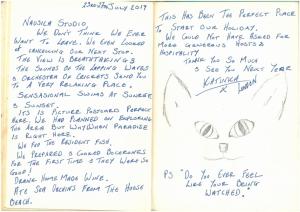 23RD JULY 2019
NAUSICA STUDIO,
WE DON'T THINK WE EVER
WANT TO LEAVE. WE EVEN LOOKED
AT CANCELLING OUR NEXT STOP.
THE VIEW IS BREATHTAKING &
THE SOUNDS OF THE LAPPING WAVES
& ORCHESTRA OF CRICKETS SEND YOU
TO A VERY RELAXING PLACE.
SENSASIONAL SWIMS AT SUNRISE
& SUNSET.
ITS IS PICTURE POSTCARD PERFECT
HERE. WE HAD PLANNED ON EXPLORING
THE AREA BUT WHY WHEN PARADISE
IS RIGHT HERE.
WE FED THE RESIDENT FISH,
WE PREPARED & COOKED
FOR THE FIRST TIME & THEY WERE SO
GOOD!
DRANK HOME MADE WINE.
ATE SEA URCHINS FROM THE HOUSE
BEACH.
THIS HAS BEEN THE PERFECT PLACE
TO START OUR HOLIDAY.
WE COULD NOT HAVE ASKED FOR
MORE GENEROUS HOSTS &
HOSPITALITY
THANK YOU SO MUCH
& SEE YOU NEXT YEAR
LONDON
PS "DO YOU EVER FEEL
LIKE YOUR BEING
WATCHED."